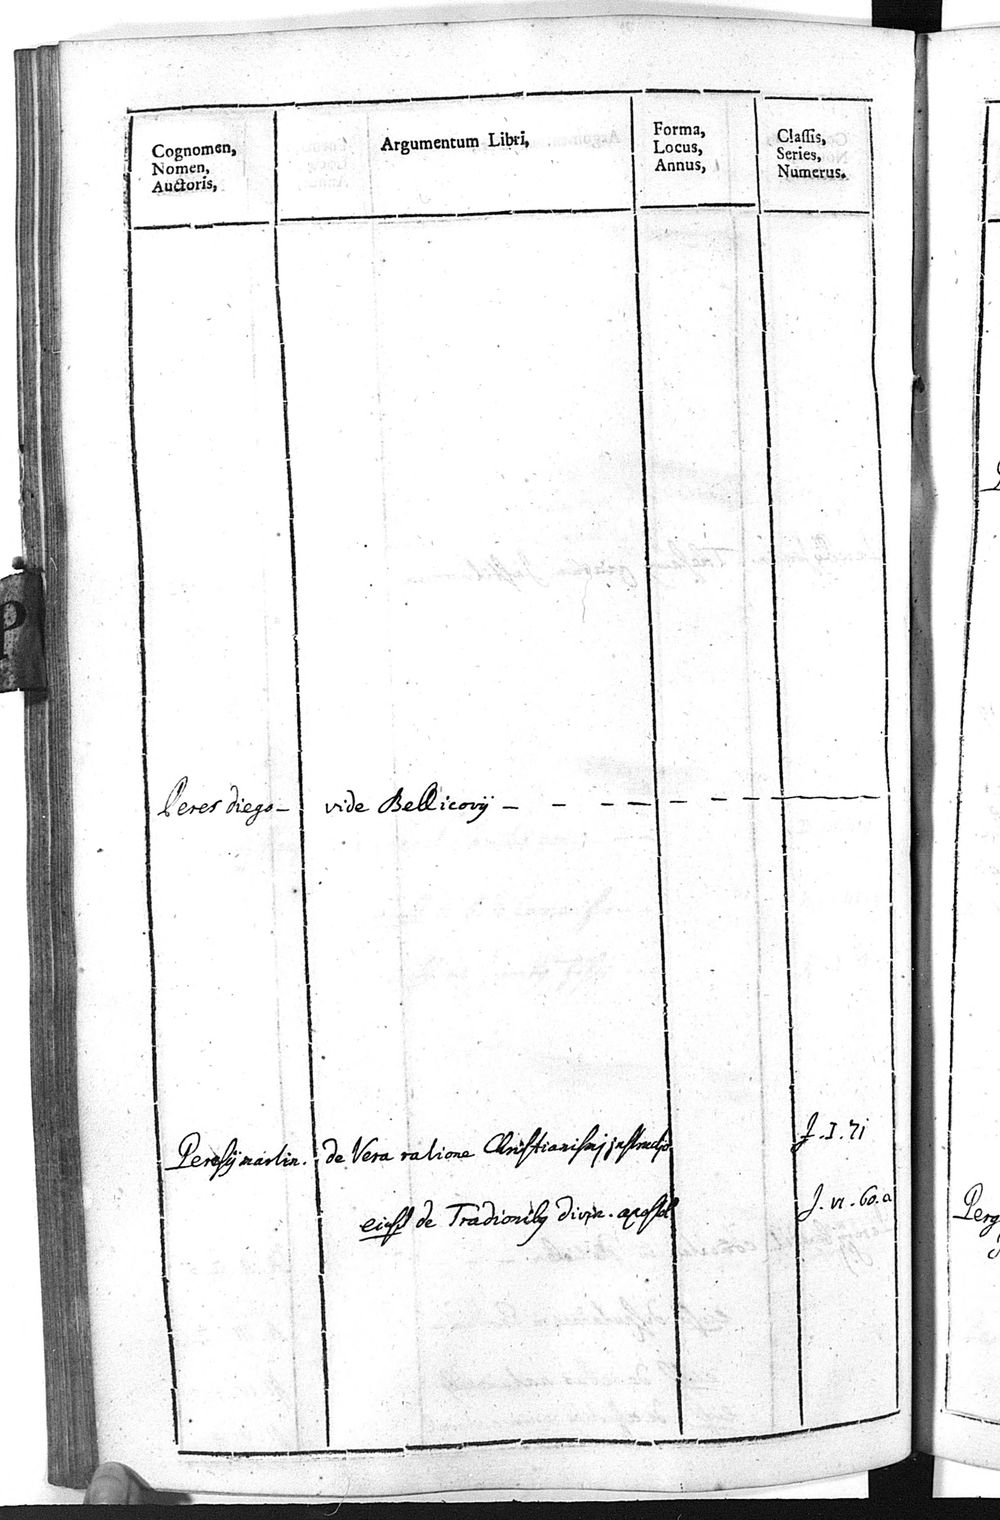 Cognomen,
Nomen,
Auctoris,
Argumentum Libri,
Forma,
Locus,
Annus,
Classis,
Series,
Numerus.
P
Peres diego – vide Bellicovij –
Peresij martin. de Vera ratione Christianismj jnstruendj J.I.71
eiusd de Tradionibq divin. apostol J.vi.60.a
Perg